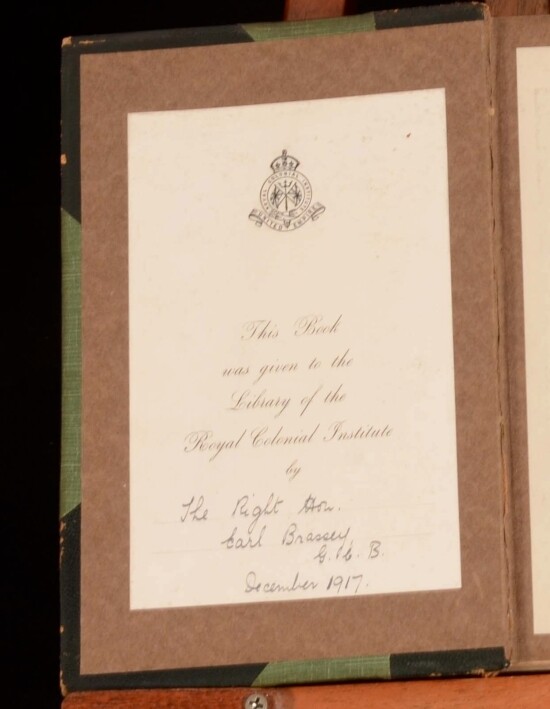 ROYAL COLONIAL INSTITUTE
UNITED EMPIRE
This Book
was given to the
Library of the
Royal Colonial Institute
by
The Right Hon.
Earl Brassey,
G.C.B.
December 1917.